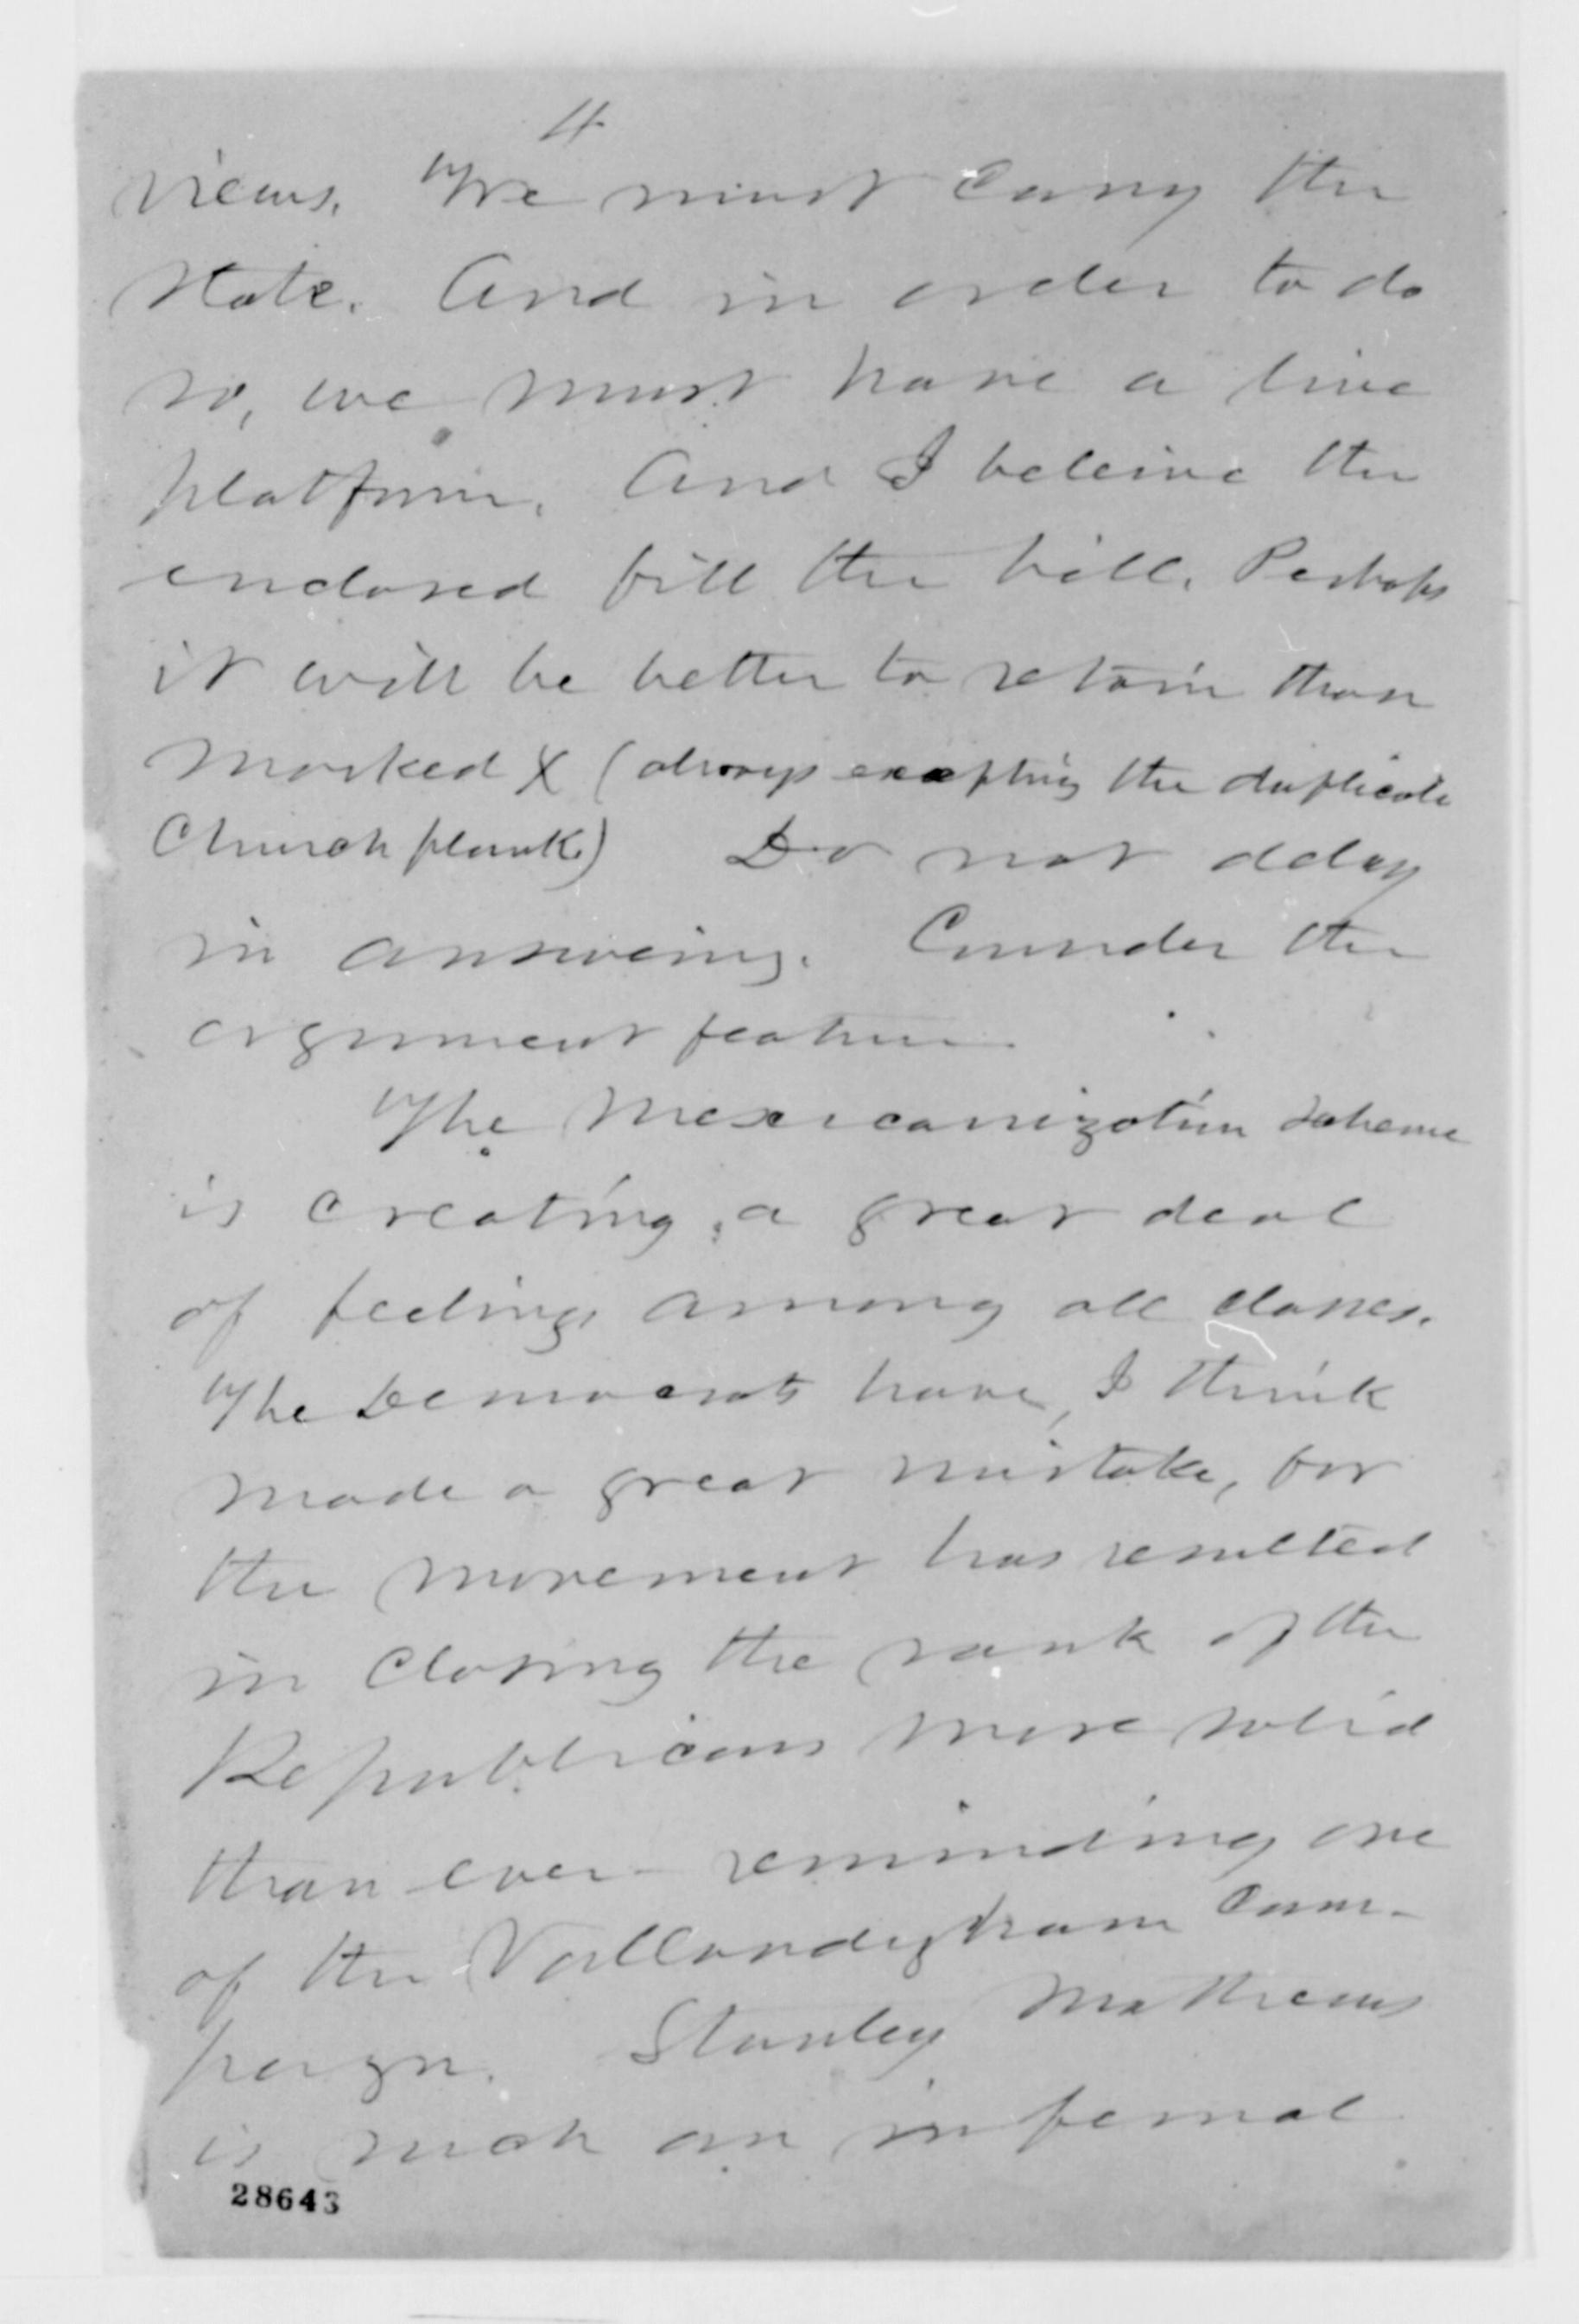 4
views. We must carry the
State. And in order to do
so, we must have a live
platform. And I beleive the
enclosed fill the bill. Perhaps
it will be better to retain those
marked X (always excepting the duplicate
Church plank) Do not delay
in answering. Consider the
argument feature.
The Mexicanization scheme
is creating a great deal
of feeling among all classes.
The Democrats have, I think
made a great mistake, for
the movement has resulted
in closing the rank of the
Republicans more solid
than ever - reminding one
of the Vallandigham Cam-
paign. Stanley Mathews
is such an infernal
28643